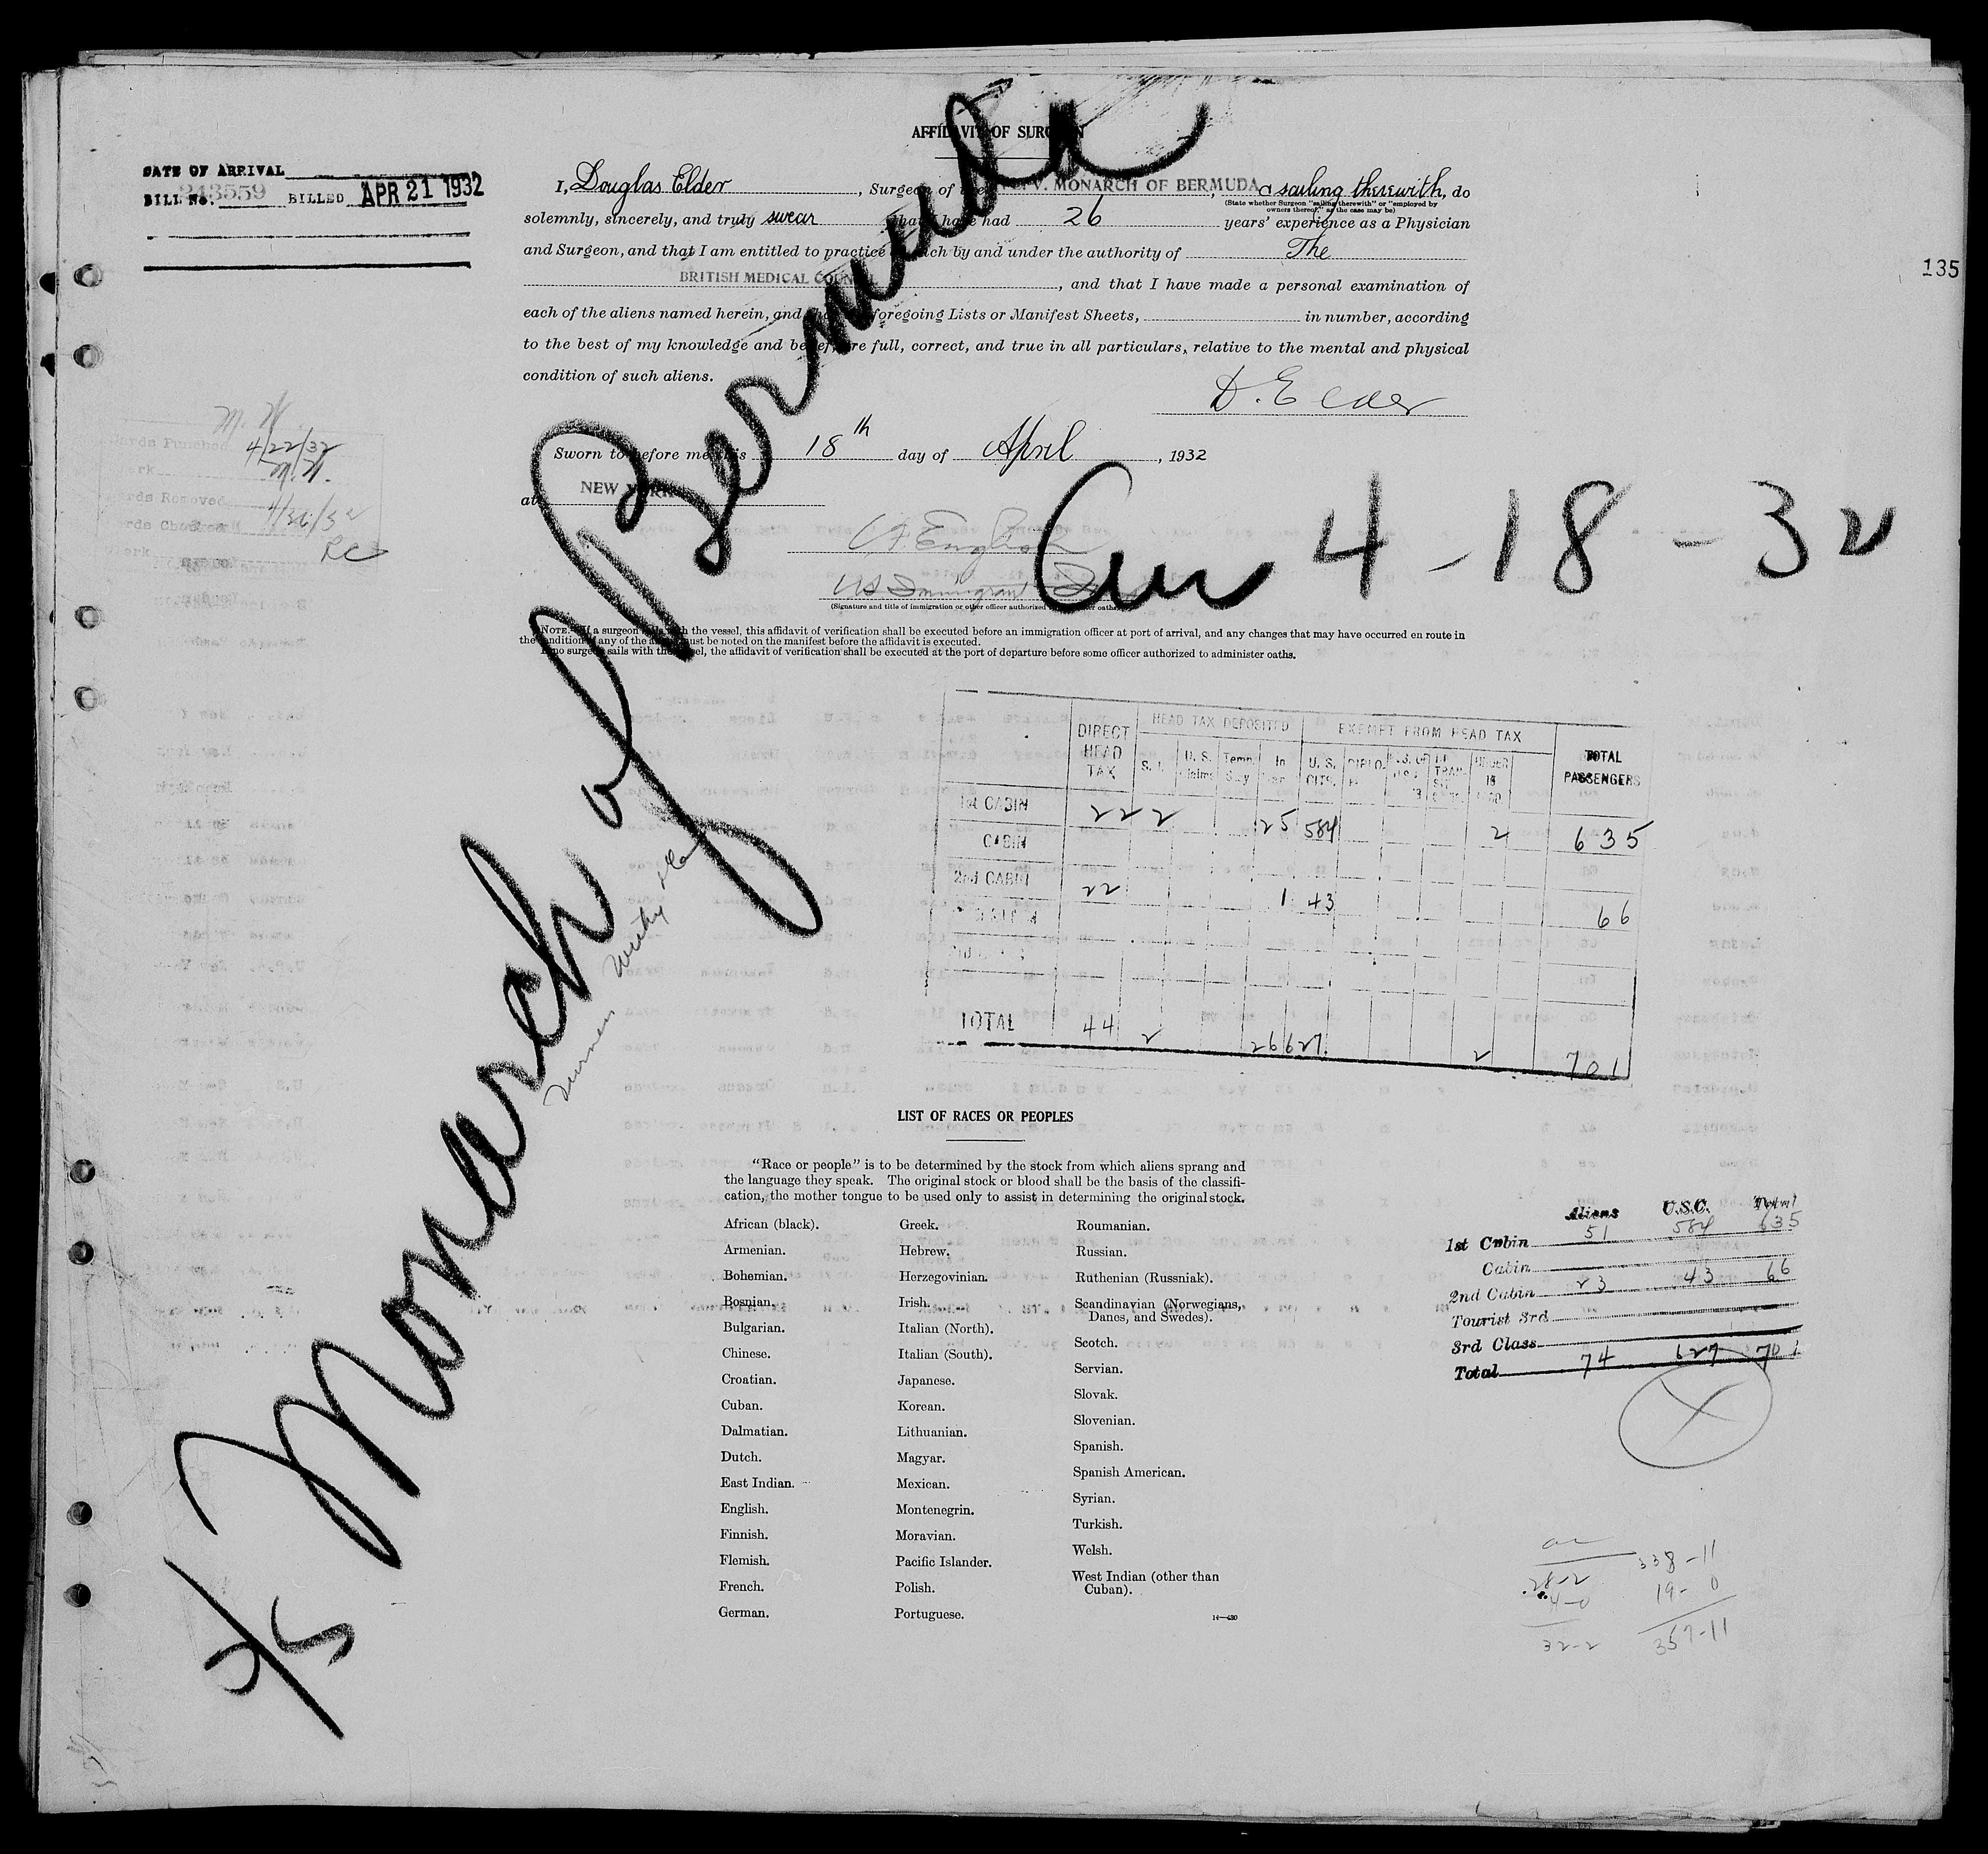 AFFIDAVIT OF SURGEON
DATE OF ARRIVAL
BILL No. 243559 BILLED APR 21 1932
135
I, Douglas Elder, Surgeon of the V. MONARCH OF BERMUDA, a sailing therewith, do
(State whether Surgeon "sailing therewith" or "employed by
owners thereof," as the case may be)
solemnly, sincerely, and truly swear that I have had 26 years' experience as a Physician
and Surgeon, and that I am entitled to practice as such by and under the authority of The
BRITISH MEDICAL COUNCIL, and that I have made a personal examination of
each of the aliens named herein, and that the foregoing Lists or Manifest Sheets, in number, according
to the best of my knowledge and belief, are full, correct, and true in all particulars, relative to the mental and physical
condition of such aliens.
D. Elder
Sworn to before me this 18th day of April, 1932
at NEW YORK
C.F. English
US Immigrant
(Signature and title of immigration or other officer authorized to administer oaths)
Arr 4-18-32
M. N.
Cards Punched 4/22/32
Clerk M. N.
Cards Removed 4/26/32
Cards Checked
Clerk RC
NOTE.—If a surgeon sails with the vessel, this affidavit of verification shall be executed before an immigration officer at port of arrival, and any changes that may have occurred en route in
the condition of any of the aliens must be noted on the manifest before the affidavit is executed.
If no surgeon sails with the vessel, the affidavit of verification shall be executed at the port of departure before some officer authorized to administer oaths.
S/S Monarch of Bermuda
DIRECT HEAD TAX HEAD TAX DEPOSITED EXEMPT FROM HEAD TAX TOTAL PASSENGERS
S. I. U. S. Claims Temp. Stay In Tran. U. S. CITS. DIPLO. UNDER 16
1st CABIN 22 2 25 584 2 635
CABIN
2nd CABIN 22 1 43 66
TOTAL 44 2 26 627 2 701
LIST OF RACES OR PEOPLES
"Race or people" is to be determined by the stock from which aliens sprang and
the language they speak. The original stock or blood shall be the basis of the classifi-
cation, the mother tongue to be used only to assist in determining the original stock.
African (black).
Armenian.
Bohemian.
Bosnian.
Bulgarian.
Chinese.
Croatian.
Cuban.
Dalmatian.
Dutch.
East Indian.
English.
Finnish.
Flemish.
French.
German.
Greek.
Hebrew.
Herzegovinian.
Irish.
Italian (North).
Italian (South).
Japanese.
Korean.
Lithuanian.
Magyar.
Mexican.
Montenegrin.
Moravian.
Pacific Islander.
Polish.
Portuguese.
Roumanian.
Russian.
Ruthenian (Russniak).
Scandinavian (Norwegians,
Danes, and Swedes).
Scotch.
Servian.
Slovak.
Slovenian.
Spanish.
Spanish American.
Syrian.
Turkish.
Welsh.
West Indian (other than
Cuban).
Aliens U.S.C. Total
1st Cabin 51 584 635
Cabin
2nd Cabin 23 43 66
Tourist 3rd
3rd Class
Total 74 627 701
X
28-2 338-11
4-0 19-0
32-2 357-11